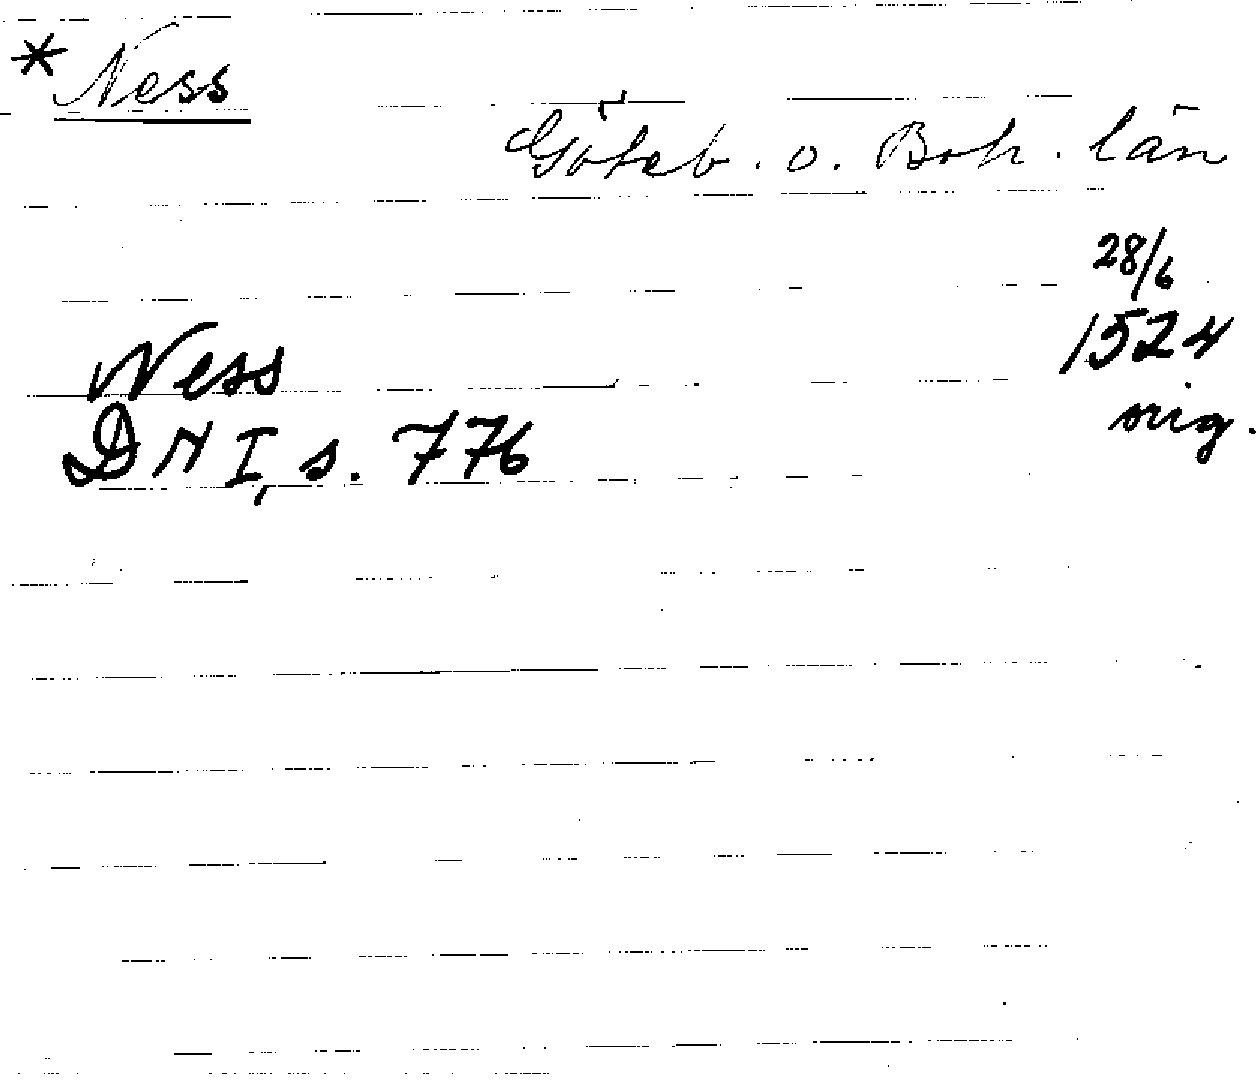 * Ness
Göteb. o. Boh. län
28/6
1524
orig.
Ness
DN I, s. 776